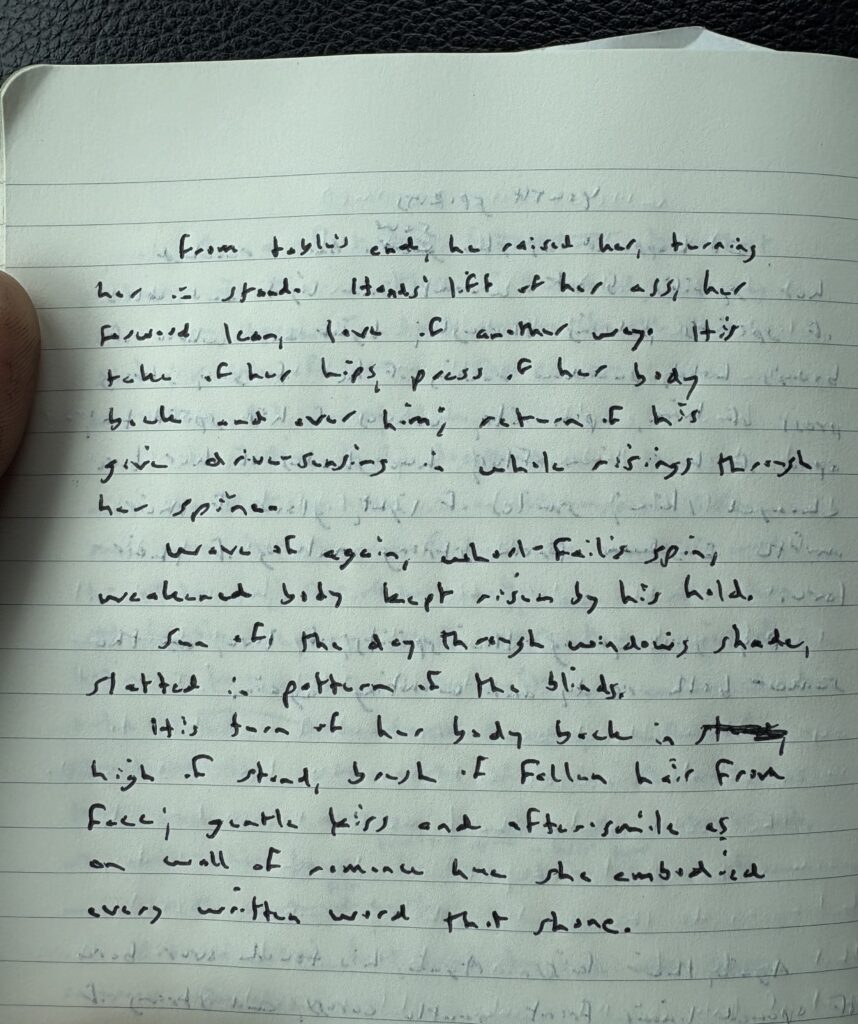 From table's end, he raised her, turning
her in stand. Hands' lift of her ass, her
forward lean, love of another way. It's
take of her hips, press of her body
back and over him; return of his
give drive-sensing in whole risings through
her spine.
Wave of again, wheel-fail's spin,
weakened body kept risen by his hold.
Sun of the day through window's shade,
slatted in pattern of the blinds.
It's turn of her body back in
high of stand, brush of fallen hair from
face; gentle kiss and after-smile as
on wall of romance hue she embodied
every written word that shone.